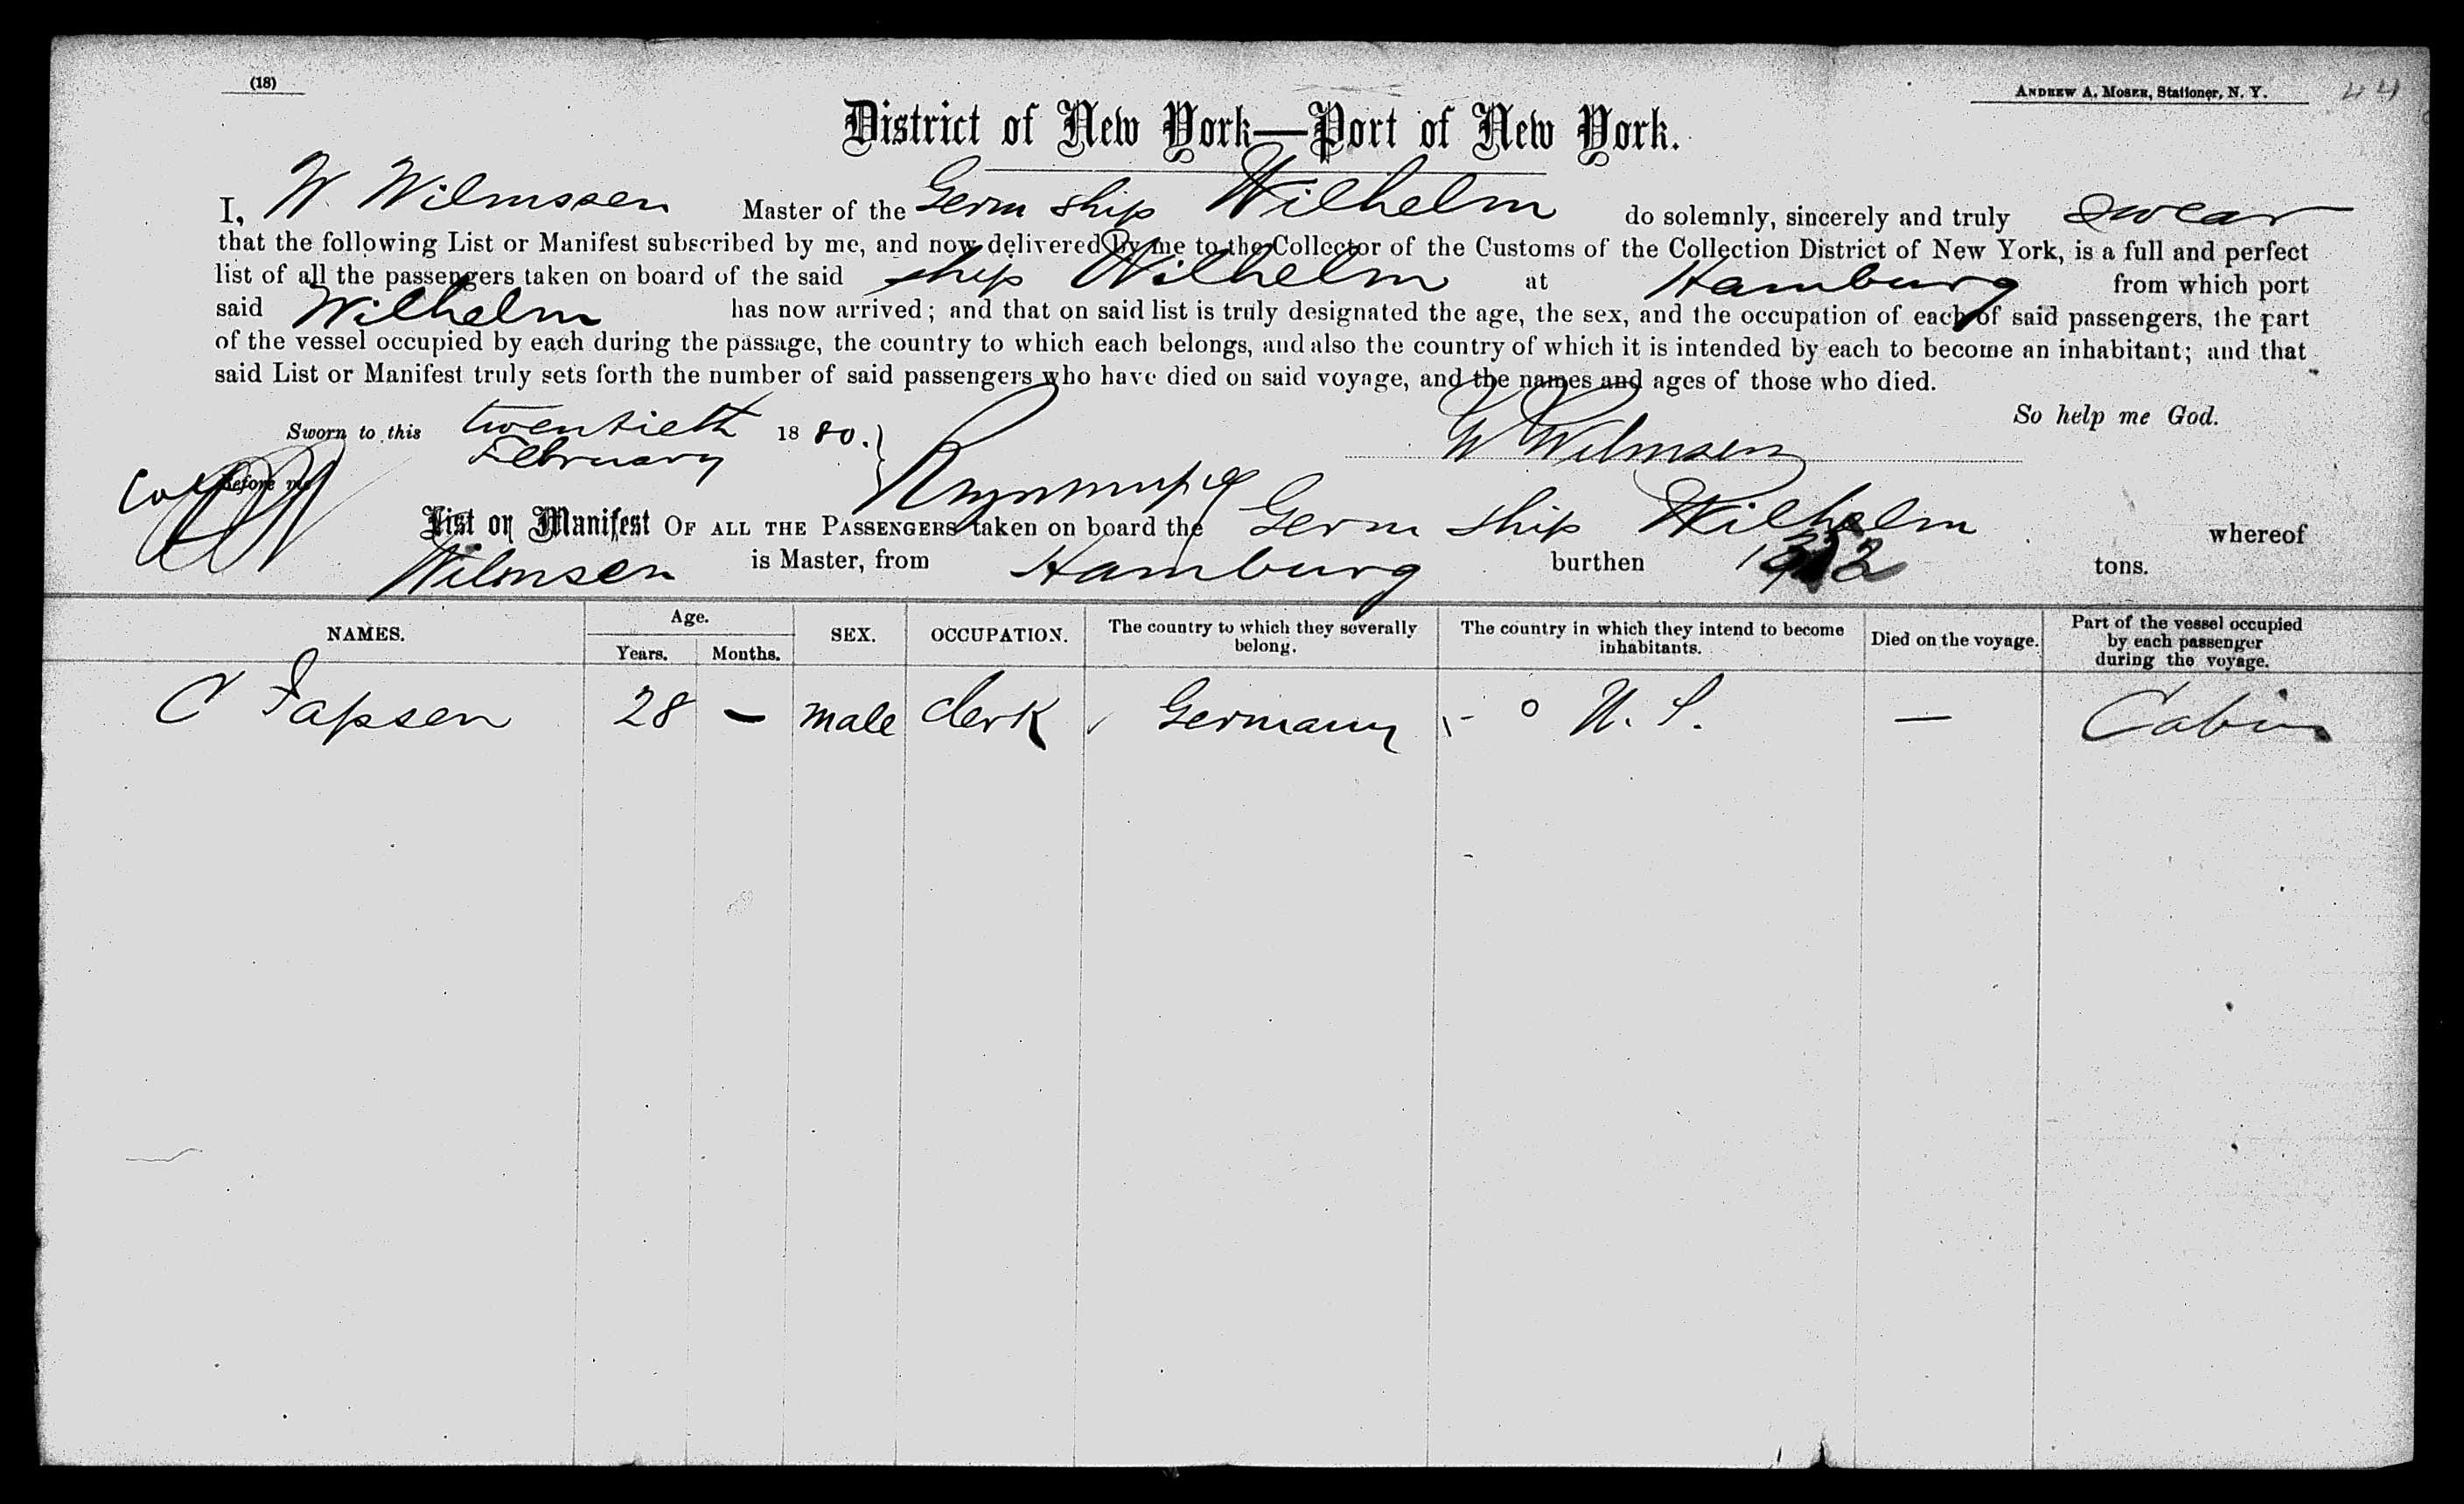 (18)
ANDREW A. MOSER, Stationer, N. Y. 44
District of New York—Port of New York.
I, W. Wilmssen Master of the Germ ship Wilhelm do solemnly, sincerely and truly swear
that the following List or Manifest subscribed by me, and now delivered by me to the Collector of the Customs of the Collection District of New York, is a full and perfect
list of all the passengers taken on board of the said ship Wilhelm at Hamburg from which port
said Wilhelm has now arrived; and that on said list is truly designated the age, the sex, and the occupation of each of said passengers, the part
of the vessel occupied by each during the passage, the country to which each belongs, and also the country of which it is intended by each to become an inhabitant; and that
said List or Manifest truly sets forth the number of said passengers who have died on said voyage, and the names and ages of those who died.
So help me God.
Sworn to this twentieth 1880.
February
W Wilmsen
Before me
List or Manifest OF ALL THE PASSENGERS taken on board the Germ ship Wilhelm whereof
Wilmsen is Master, from Hamburg burthen tons.
NAMES. Age. Years. Months. SEX. OCCUPATION. The country to which they severally belong. The country in which they intend to become inhabitants. Died on the voyage. Part of the vessel occupied by each passenger during the voyage.
C Japsen 28 — male clerk Germany U. S. — Cabin